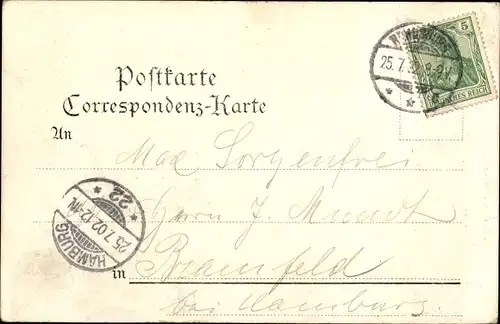 5
DEUTSCHES REICH
25.7.02
Postkarte
Correspondenz-Karte
An
Max Sorgenfrei
Herrn J. Mundt
in Bramfeld
bei Hamburg.
HAMBURG
25.7.02.
* 22 *